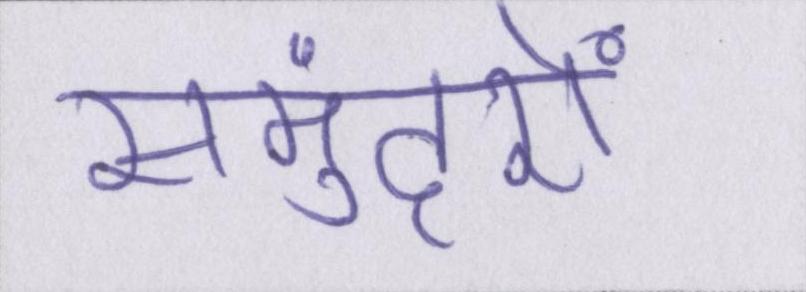 समुंदरों